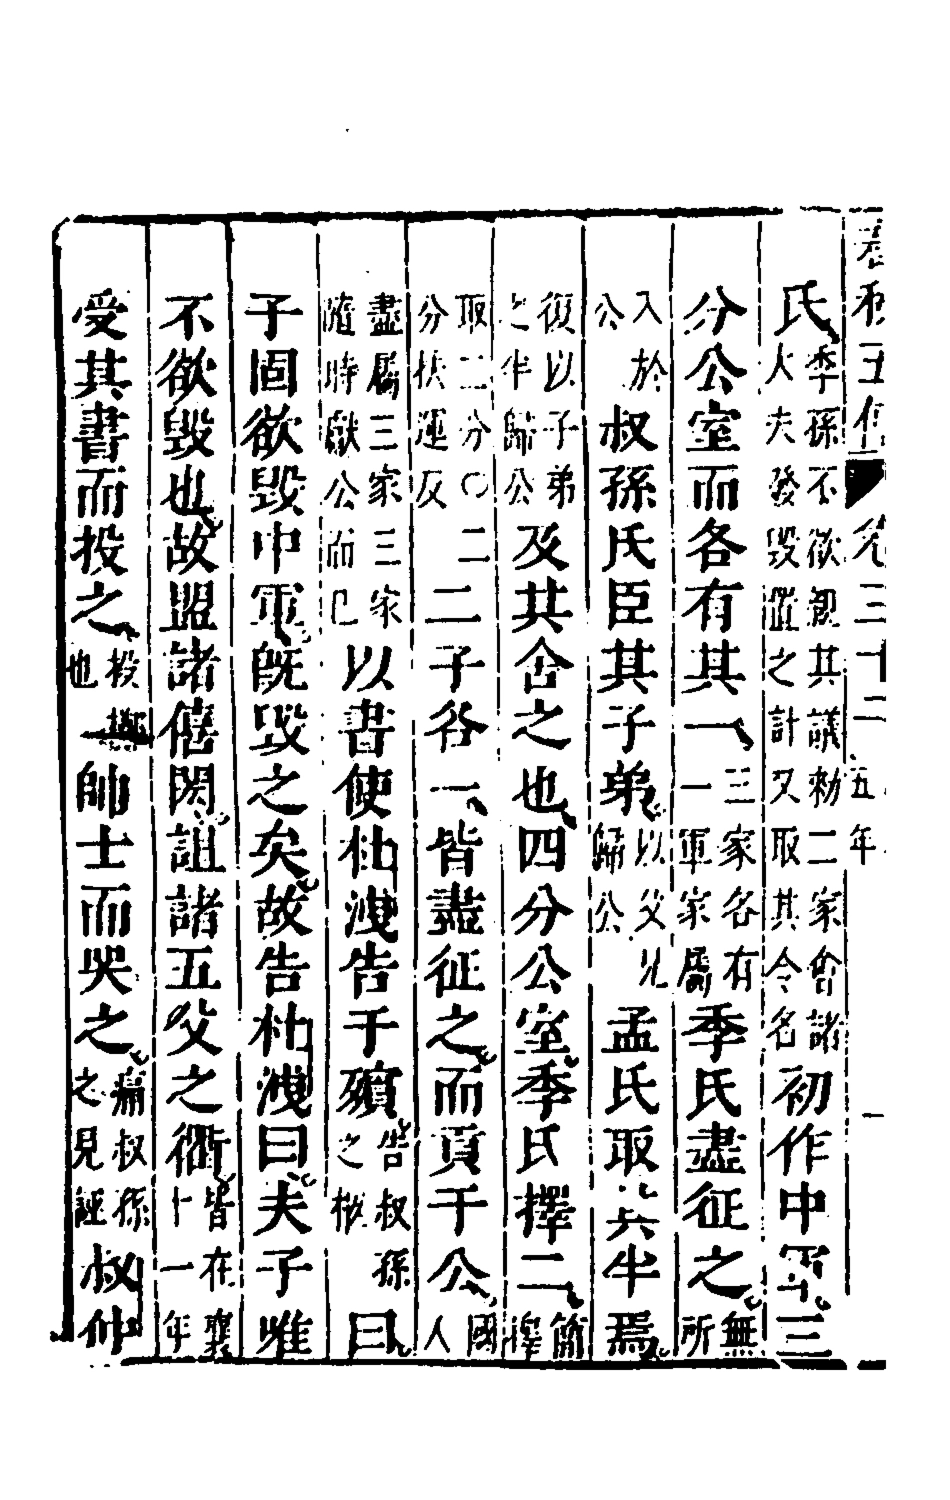 春秋五傳 卷三十二 五年 一
氏季孫不欲親其議勑二家會諸大夫發毀置之計又取其令名初作中軍三
分公室而各有其一三家各有一軍家屬季氏盡征之無所
入於公叔孫氏臣其子弟以父兄歸公孟氏取其半焉
復以子弟之半歸公及其舍之也四分公室季氏擇二簡擇
取二分〇二分扶運反二子各一皆盡征之而貢于公國人
盡屬三家三家隨時獻公而已以書使杜洩告于殯告叔孫之柩曰
子固欲毀中軍既毀之矣故告杜洩曰夫子唯
不欲毀也故盟諸僖閎詛諸五父之衢皆在襄十一年
受其書而投之投擲也帥士而哭之痛叔孫之見誣叔仲